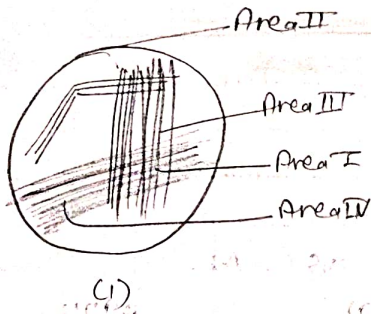 Area II
Area III
Area I
Area IV
(1)